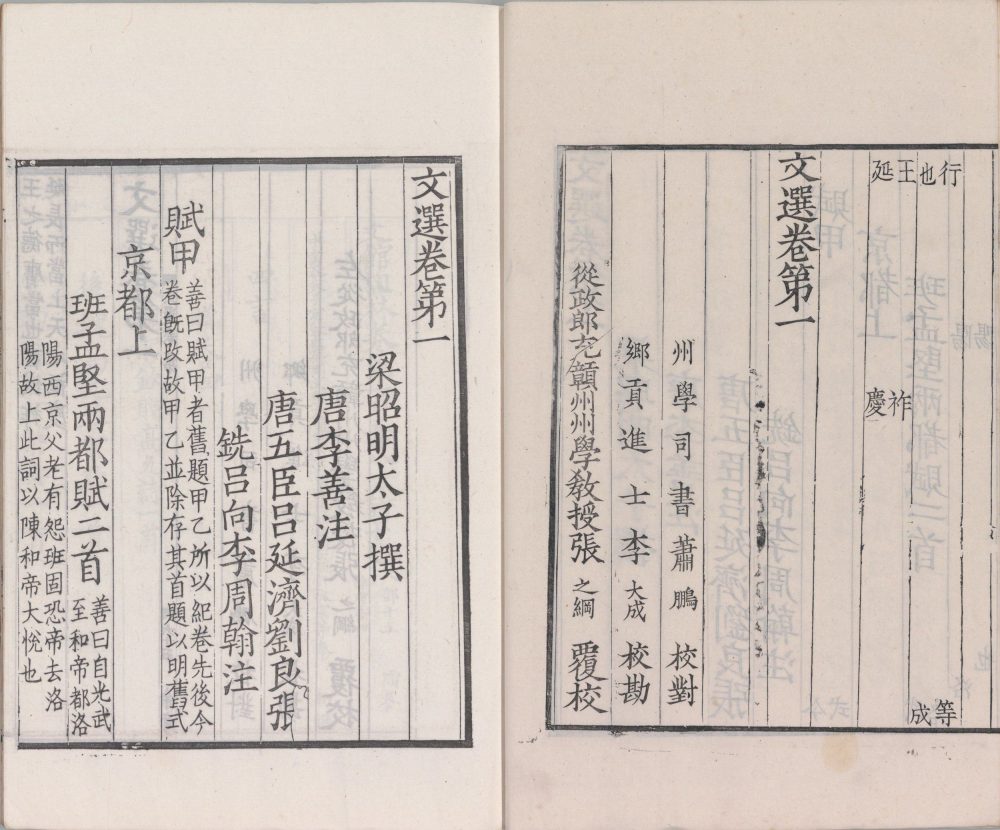 行 等
也 成
王 祚
延 慶
文選卷第一
州學司書蕭鵬校對
鄉貢進士李大成校勘
從政郎充贛州州學教授張之綱覆校
文選卷第一
梁昭明太子撰
唐李善注
唐五臣呂延濟劉良張
銑呂向李周翰注
賦甲 善曰賦甲者舊題甲乙所以紀卷先後今
卷旣改故甲乙並除存其首題以明舊式
京都上
班孟堅兩都賦二首 善曰自光武
至和帝都洛
陽西京父老有怨班固恐帝去洛
陽故上此詞以陳和帝大悅也